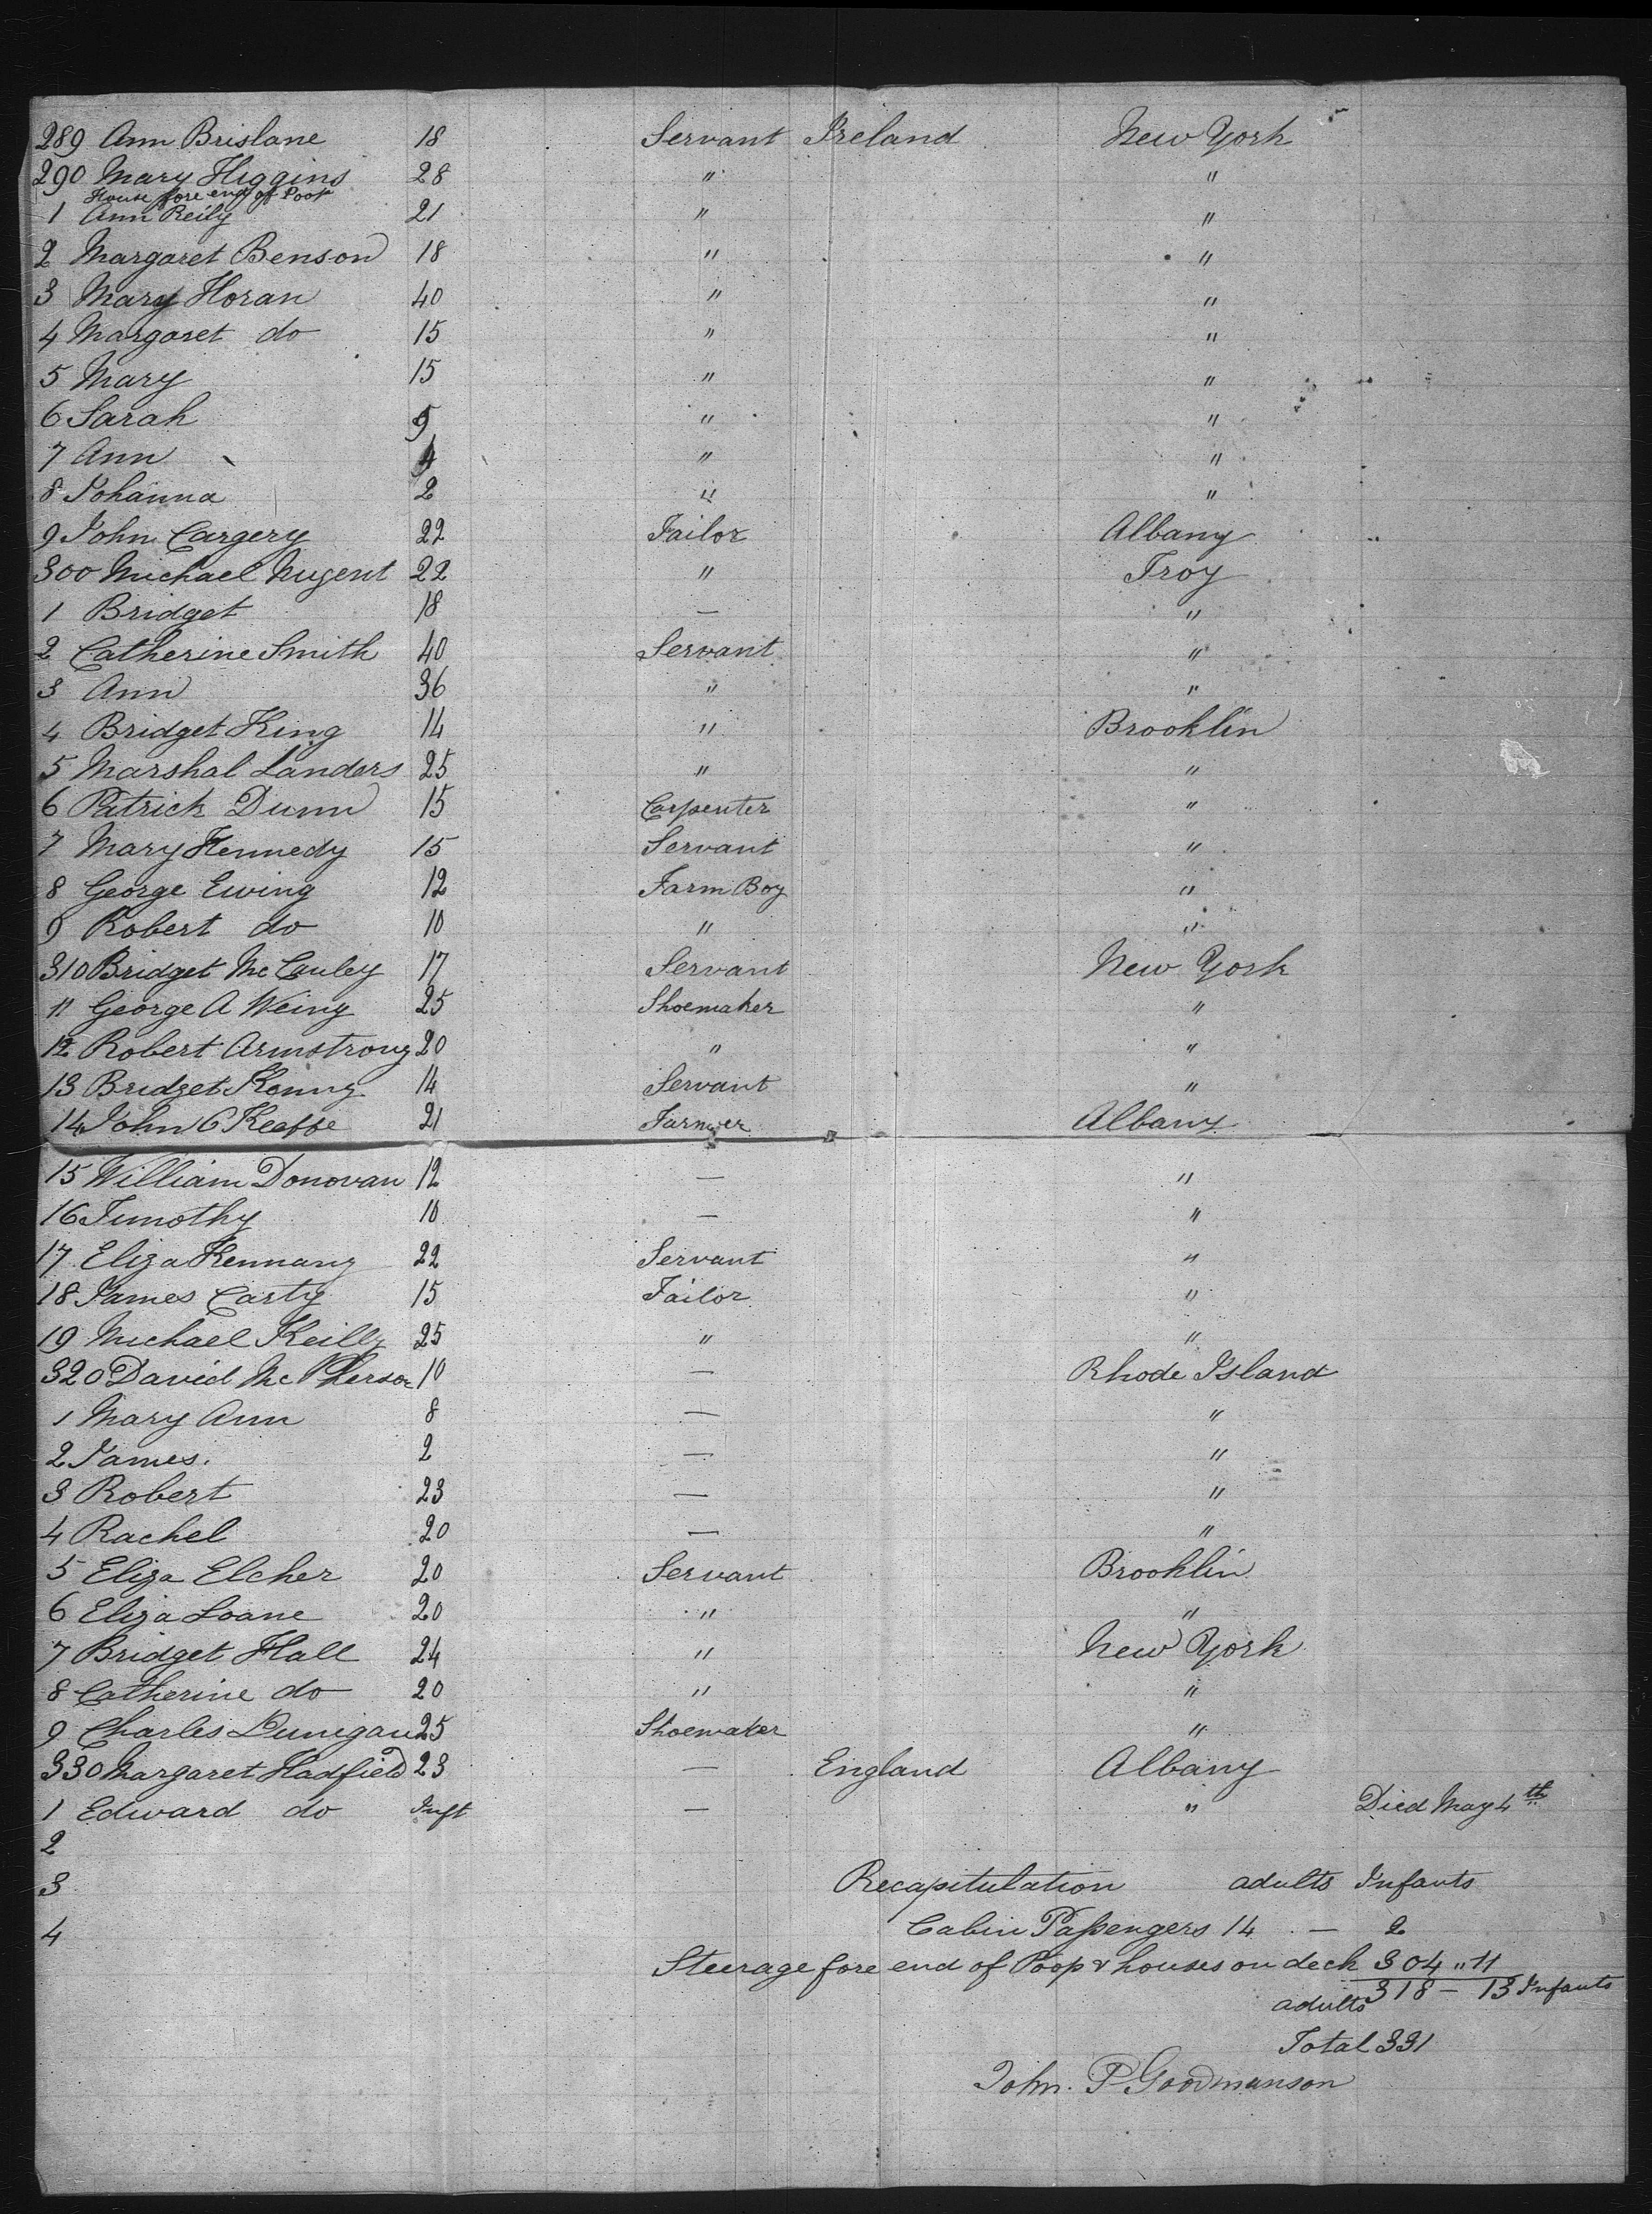 289 Ann Brislane 18 Servant Ireland New York
290 Mary Higgins 28 " "
House fore end of Poop
1 Ann Reily 21 " "
2 Margaret Benson 18 " "
3 Mary Horan 40 " "
4 Margaret do 15 " "
5 Mary 15 " "
6 Sarah 5 " "
7 Ann 4 " "
8 Johanna 2 " "
9 John Cargery 22 Tailor Albany
300 Michael Nugent 22 " Troy
1 Bridget 18 — "
2 Catherine Smith 40 Servant "
3 Ann 36 " "
4 Bridget King 14 " Brooklin
5 Marshal Landers 25 " "
6 Patrick Dunn 15 Carpenter "
7 Mary Kennedy 15 Servant "
8 George Ewing 12 Farm Boy "
9 Robert do 10 " "
310 Bridget McCauley 17 Servant New York
11 George A Weing 25 Shoemaker "
12 Robert Armstrong 20 " "
13 Bridget Kenny 14 Servant "
14 John O Keaffe 21 Farmer Albany
15 William Donovan 12 — "
16 Timothy 10 — "
17 Eliza Kennany 22 Servant "
18 James Carty 15 Tailor "
19 Michael Reilly 25 " "
320 David McPherson 10 — Rhode Island
1 Mary Ann 8 — "
2 James. 2 — "
3 Robert 23 — "
4 Rachel 20 — "
5 Eliza Elcher 20 Servant Brooklin
6 Eliza Loane 20 " "
7 Bridget Hall 24 " New York
8 Catherine do 20 " "
9 Charles Dunigan 25 Shoemaker "
330 Margaret Hadfield 23 — England Albany
1 Edward do Inft — " Died May 4th
2
3 Recapitulation adults Infants
4 Cabin Passengers 14 — 2
Steerage fore end of Poop & houses on deck 304 " 11
adults 318 — 13 Infants
Total 331
John. P Goodmanson